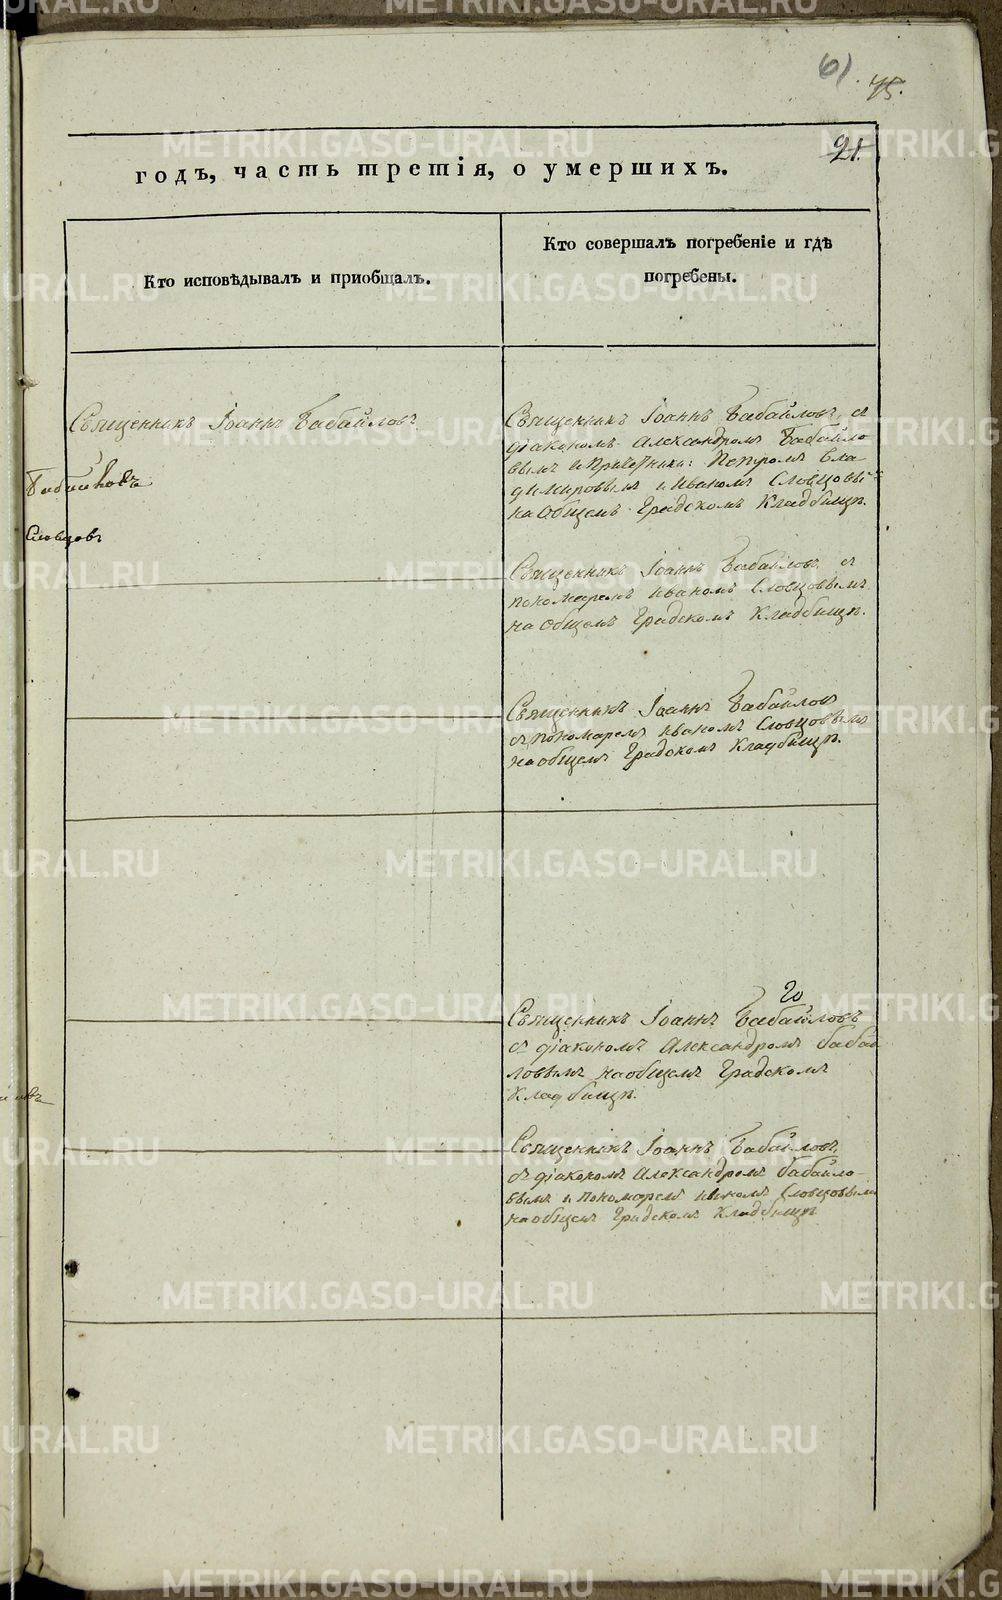 61.
75.
21.
годъ, часть третія, о умершихъ.
Кто исповѣдывалъ и пріобщалъ.
Кто совершалъ погребеніе и гдѣ
погребены.
Священникъ Іоаннъ Бабайловъ
Словцовъ
Священникъ Іоаннъ Бабайловъ, съ
діакономъ Александромъ Бабайло
вымъ и Причетники: Петромъ Вла
диміровымъ и Иваномъ Словцовы
на Общемъ Градскомъ Кладбищѣ.
Священникъ Іоаннъ Бабайловъ, съ
пономаремъ Иваномъ Словцовымъ
на Общемъ Градскомъ Кладбищѣ.
Священникъ Іоаннъ Бабайловъ
съ пономаремъ Иваномъ Словцовымъ
на общемъ Градскомъ Кладбищѣ.
20
Священникъ Іоаннъ Бабайловъ
съ діакономъ Александромъ Бабай
ловымъ на общемъ Градскомъ
Кладбищѣ.
Священникъ Іоаннъ Бабайловъ,
съ діакономъ Александромъ Бабайло-
вымъ и пономаремъ Словцовымъ
на общемъ Градскомъ Кладбищѣ
METRIKI.GASO-URAL.RU